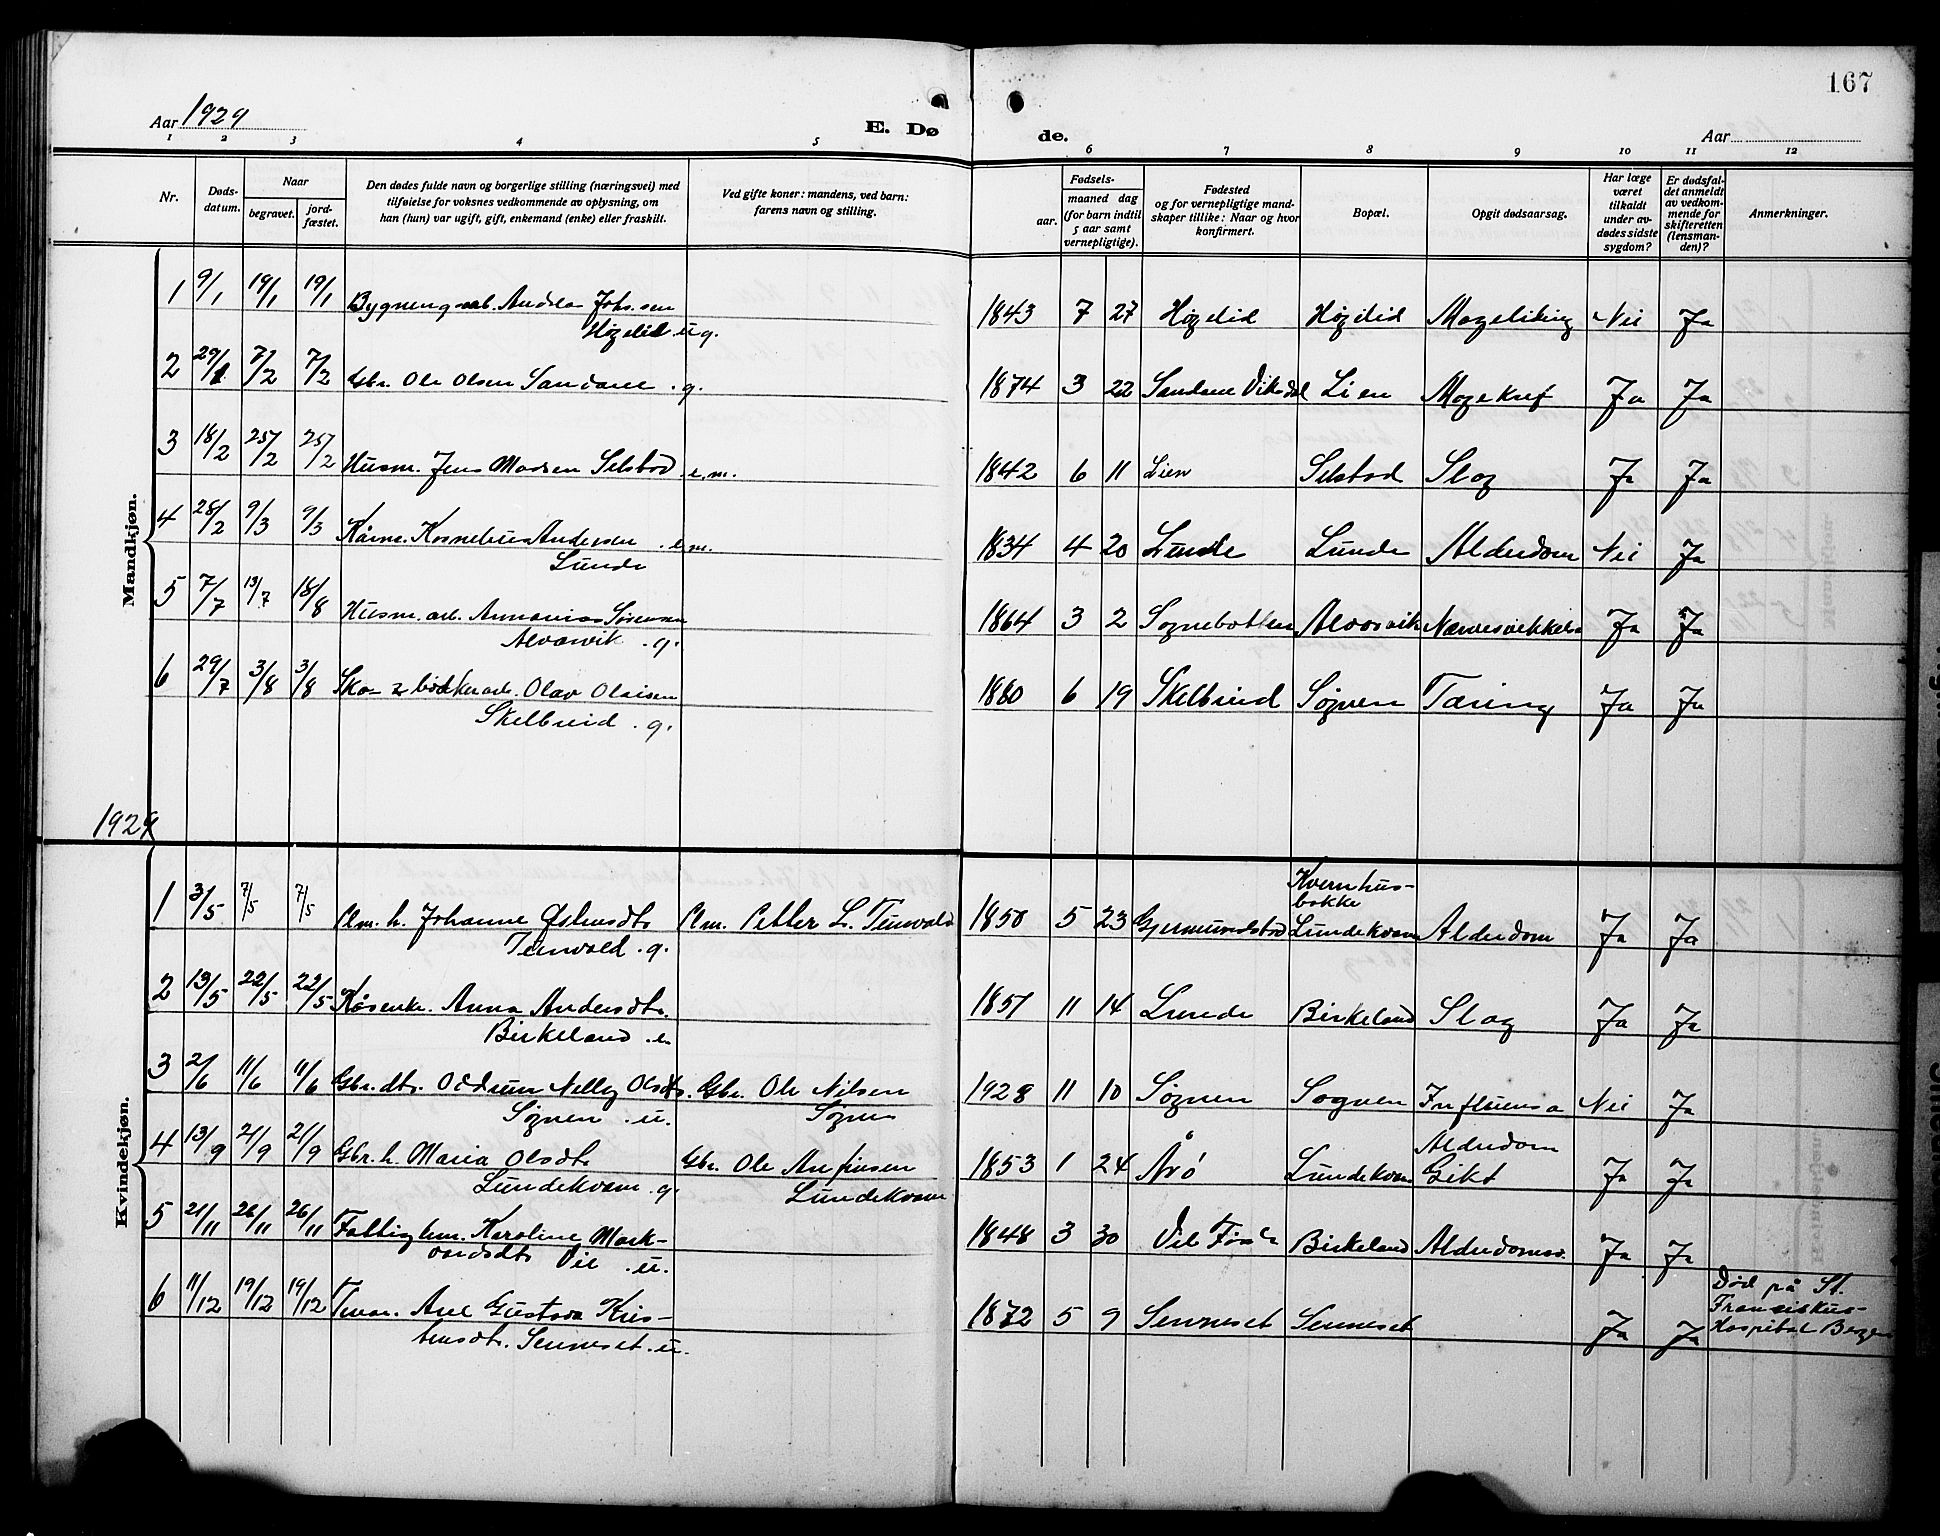 167
Aar 1929
E. Dø
de.
Aar
1 2 3 4 5 6 7 8 9 10 11 12
Nr.
Døds-
datum.
Naar
begravet.
jord-
fæstet.
Den dødes fulde navn og borgerlige stilling (næringsvei) med
tilføielse for voksnes vedkommende av oplysning, om
han (hun) var ugift, gift, enkemand (enke) eller fraskilt.
Ved gifte koner: mandens, ved barn:
farens navn og stilling.
Fødsels-
aar.
maaned dag
(for barn indtil
5 aar samt
vernepligtige).
Fødested
og for vernepligtige mand-
skaper tillike: Naar og hvor
konfirmert.
Bopæl.
Opgit dødsaarsag.
Har læge
været
tilkaldt
under av-
dødes sidste
sygdom?
Er dødsfal-
det anmeldt
av vedkom-
mende for
skifteretten
(lensman-
den)?
Anmerkninger.
Mandkjøn.
1 9/1 19/1 19/1 Bygningsarb. Andreas Johs.sen 1843 7 27 Høgelid Høgelid Nei Ja
Høgelid ug.
2 29/1 7/2 7/2 Gbr. Ole Olsen Sandane . g. 1874 3 22 Sandene Lien Ja Ja
3 18/2 25/2 25/2 Husm. Jens Madsen Selstad . e.m. 1842 6 11 Lien Selstad Slag Ja Ja
4 28/2 9/3 9/3 Kårm. Kornelius Andersen . e.m. 1834 4 20 Lunde Lunde Alderdom Nei Ja
Lunde
5 7/7 13/7 18/8 Husm. arb. Annanias Sørensen 1864 3 2 Sognebotten Alvasvik Ja Ja
Alvasvik . g.
6 29/7 3/8 3/8 Sko- & bødkerarb. Olav Olaisen 1860 6 19 Skelbreid Søgnen Tæring Ja Ja
Skelbreid . g.
1929
Kvindekjøn.
Kvernhus-
bakke
1 3/5 7/5 7/5 Plm. h. Johanne Østensdtr. Plm. Petter L. Tenwald 1850 5 23 Gjermundstad Lundekvam Alderdom Ja Ja
Tenwald . g.
2 13/5 22/5 22/5 Kårenke. Anna Andersdtr. 1851 11 14 Lunde Birkeland Slag Ja Ja
Birkeland . e.
3 2/6 11/6 11/6 Gbr. dtr. Oddrun Nelly Olsdtr. Gbr. Ole Nilsen 1928 11 10 Søgnen Sognen Influensa Nei Ja
Søgnen . u. Sognen
Alderdom
4 13/9 21/9 21/9 Gbr. h. Maria Olsdtr. Gbr. Ole Anfinsen 1853 1 24 Årö Lundekvam Gikt Ja Ja
Lundekvam . g. Lundekvam
5 21/11 26/11 26/11 Fattiglem. Karoline Mark- 1848 3 30 Vie Førde Birkeland Alderdomssv. Ja Ja
vardsdtr. Vie . u.
Død på St.
Franciskus-
6 11/12 19/12 19/12 Ane Gustava Kris- 1872 5 9 Senneset Senneset Ja Ja Hospital Bergen
tensdtr. Senneset . u.